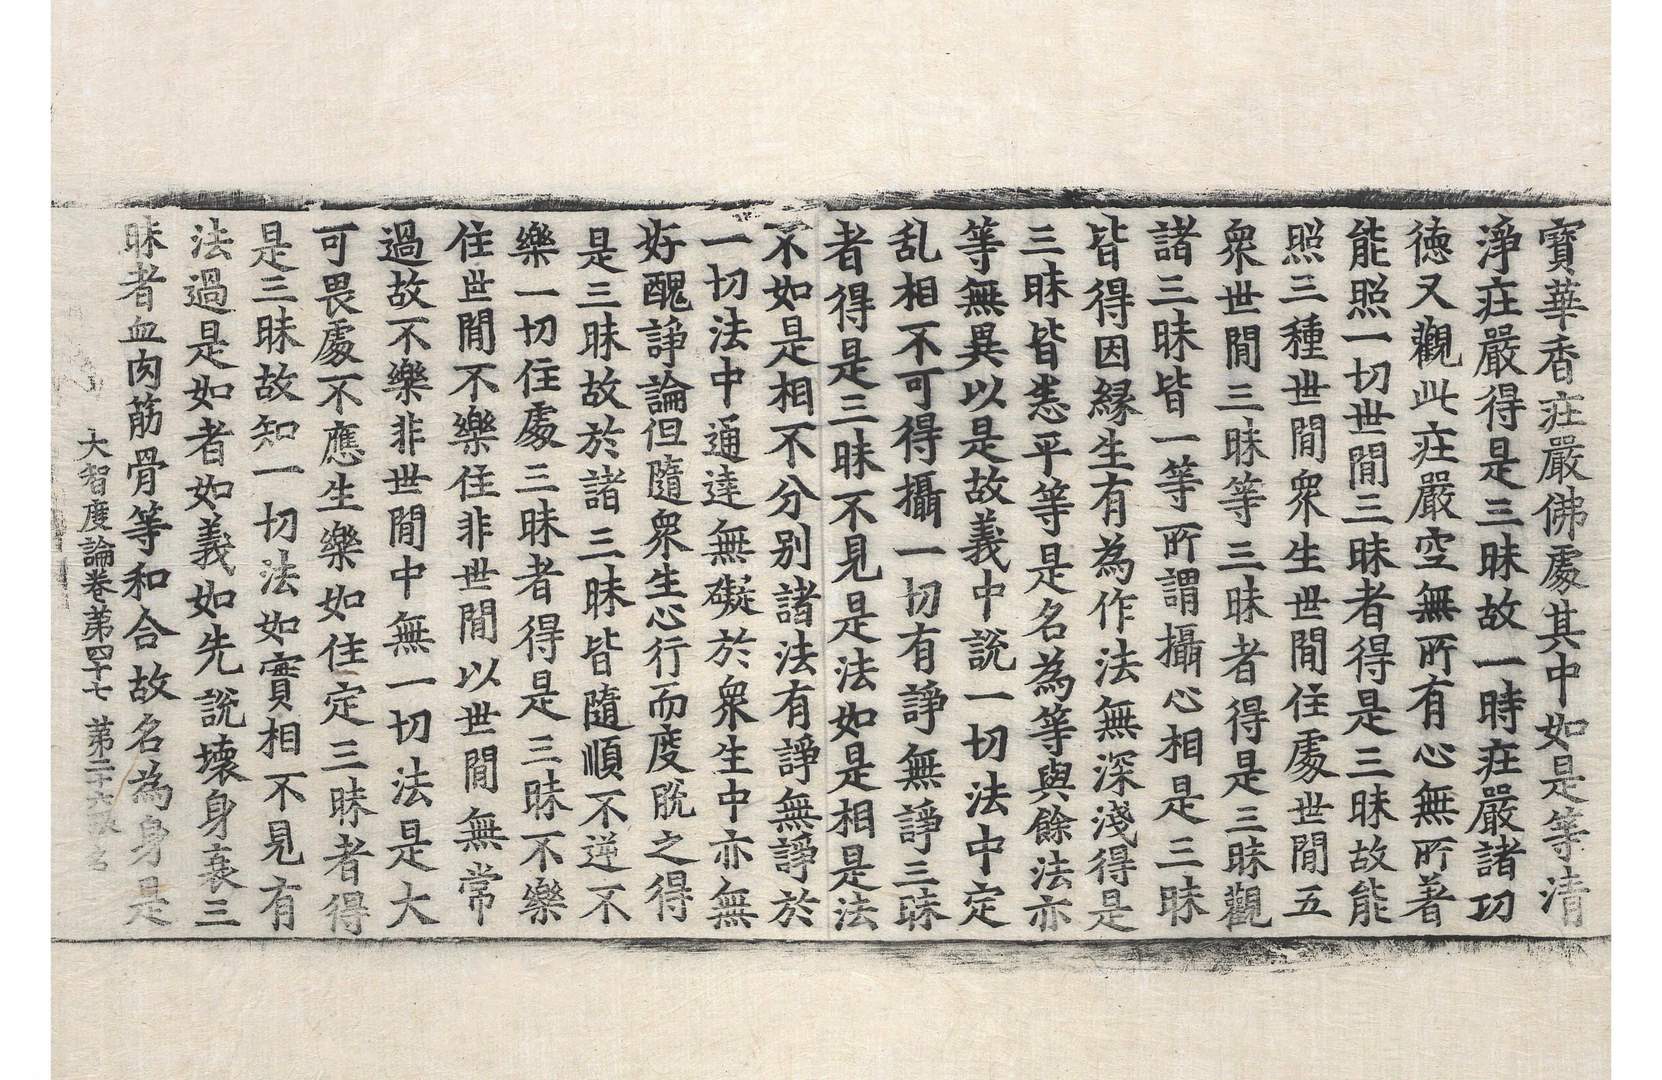 寶華香庄嚴佛處其中如是等清
淨庄嚴得是三昧故一時庄嚴諸功
徳又觀此庄嚴空無所有心無所著
能照一切世閒三昧者得是三昧故能
照三種世閒衆生世閒住處世閒五
衆世閒三昧等三昧者得是三昧觀
諸三昧皆一等所謂攝心相是三昧
皆得因緣生有為作法無深淺得是
三昧皆悉平等是名為等與餘法亦
等無異以是故義中說一切法中定
乱相不可得攝一切有諍無諍三昧
者得是三昧不見是法如是相是法
不如是相不分别諸法有諍無諍於
一切法中通達無礙於衆生中亦無
好醜諍論但隨衆生心行而度脫之得
是三昧故於諸三昧皆隨順不逆不
樂一切住處三昧者得是三昧不樂
住世閒不樂住非世閒以世閒無常
過故不樂非世閒中無一切法是大
可畏處不應生樂如住定三昧者得
是三昧故知一切法如實相不見有
法過是如者如義如先說壞身衰三
昧者血肉筋骨等和合故名為身是
大智度論卷第四十七 第二十六張 名